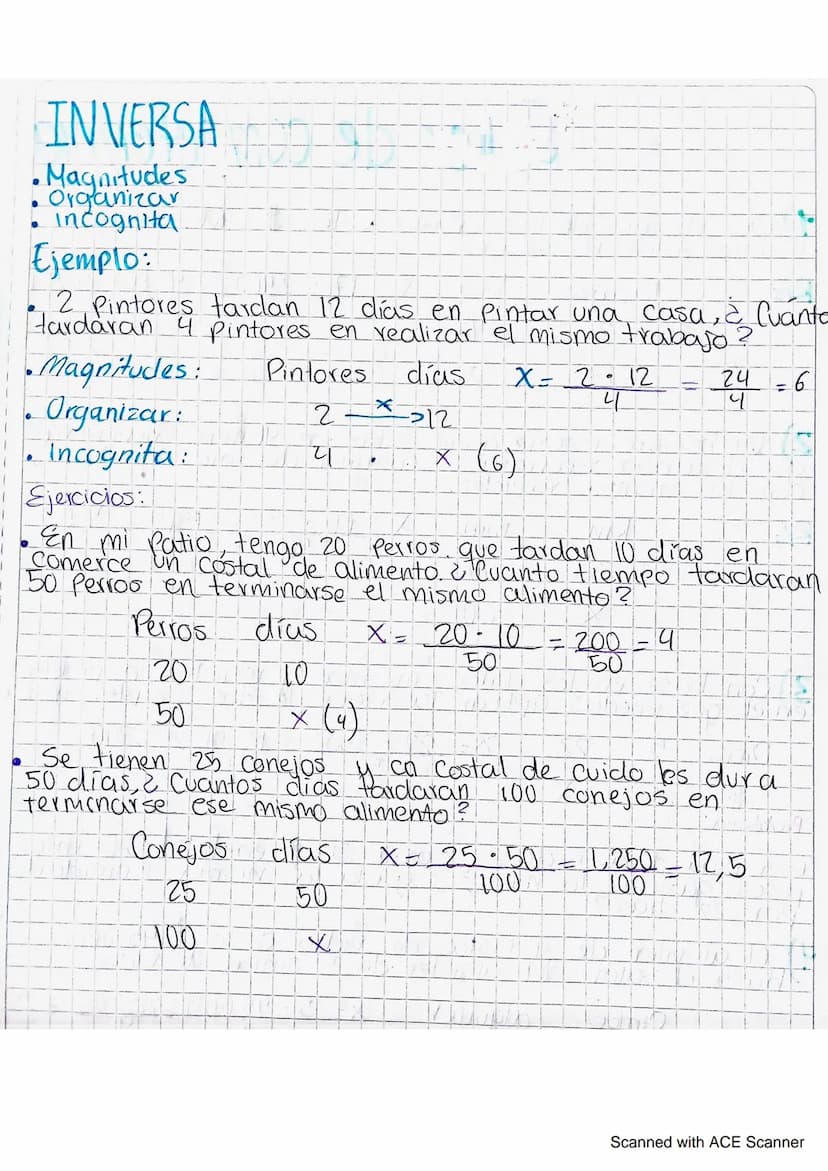 INVERSA
• Magnitudes
• Organizar
• incognita
Ejemplo:
• 2 Pintores tardan 12 días en pintar una casa, ¿ Cuánto
tardaran 4 pintores en realizar el mismo trabajo?
• Magnitudes: Pintores días X = 2 · 12 / 4 = 24 / 4 = 6
• Organizar: 2 x → 12
• Incognita: 4 . x (6)
Ejercicios:
• En mi patio, tengo 20 perros que tardan 10 días en
comerce un costal de alimento. ¿Cuanto tiempo tardaran
50 Perros en terminarse el mismo alimento?
Perros días X = 20 · 10 / 50 = 200 / 50 = 4
20 10
50 x (4)
• Se tienen 25 conejos y ca costal de cuido les dura
50 días, ¿ Cuantos días tardaran 100 conejos en
termenarse ese mismo alimento?
Conejos días X = 25 · 50 / 100 = 1,250 / 100 = 12,5
25 50
100 x
Scanned with ACE Scanner